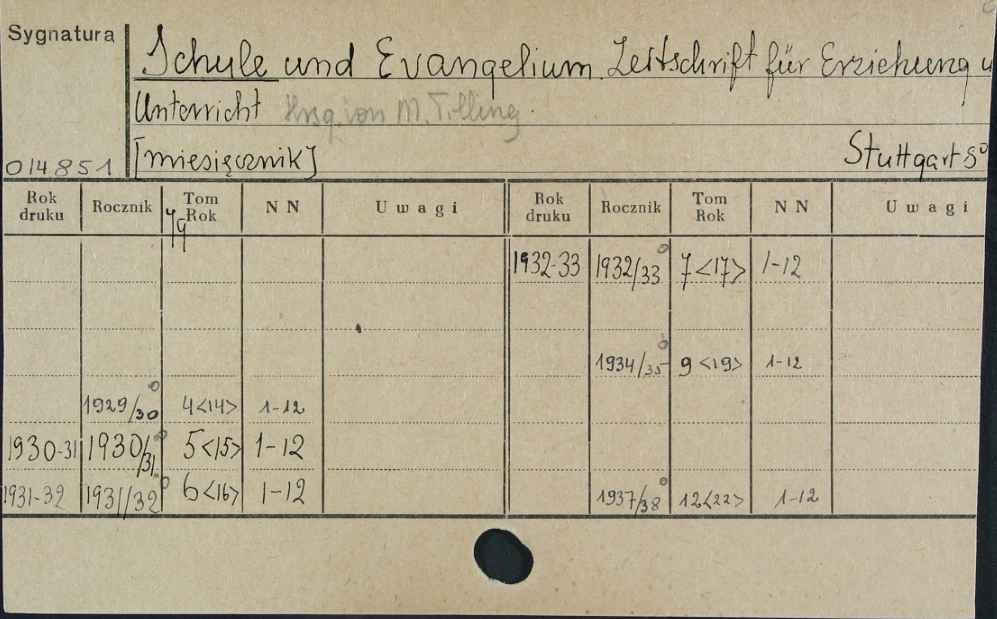 Sygnatura
Schule und Evangelium. Zeitschrift für Erziehung u
Unterricht Hrsg. von M. Tilling.
014851 [miesięcznik] Stuttgart 8°
Rok druku Rocznik Tom Rok N N Uwagi Rok druku Rocznik Tom Rok N N Uwagi
1932-33 1932/33 7<17> 1-12
1934/35 9<19> 1-12
1929/30 4<14> 1-12
1930-31 1930/31 5<15> 1-12
1931-32 1931/32 6<16> 1-12 1937/38 12<22> 1-12